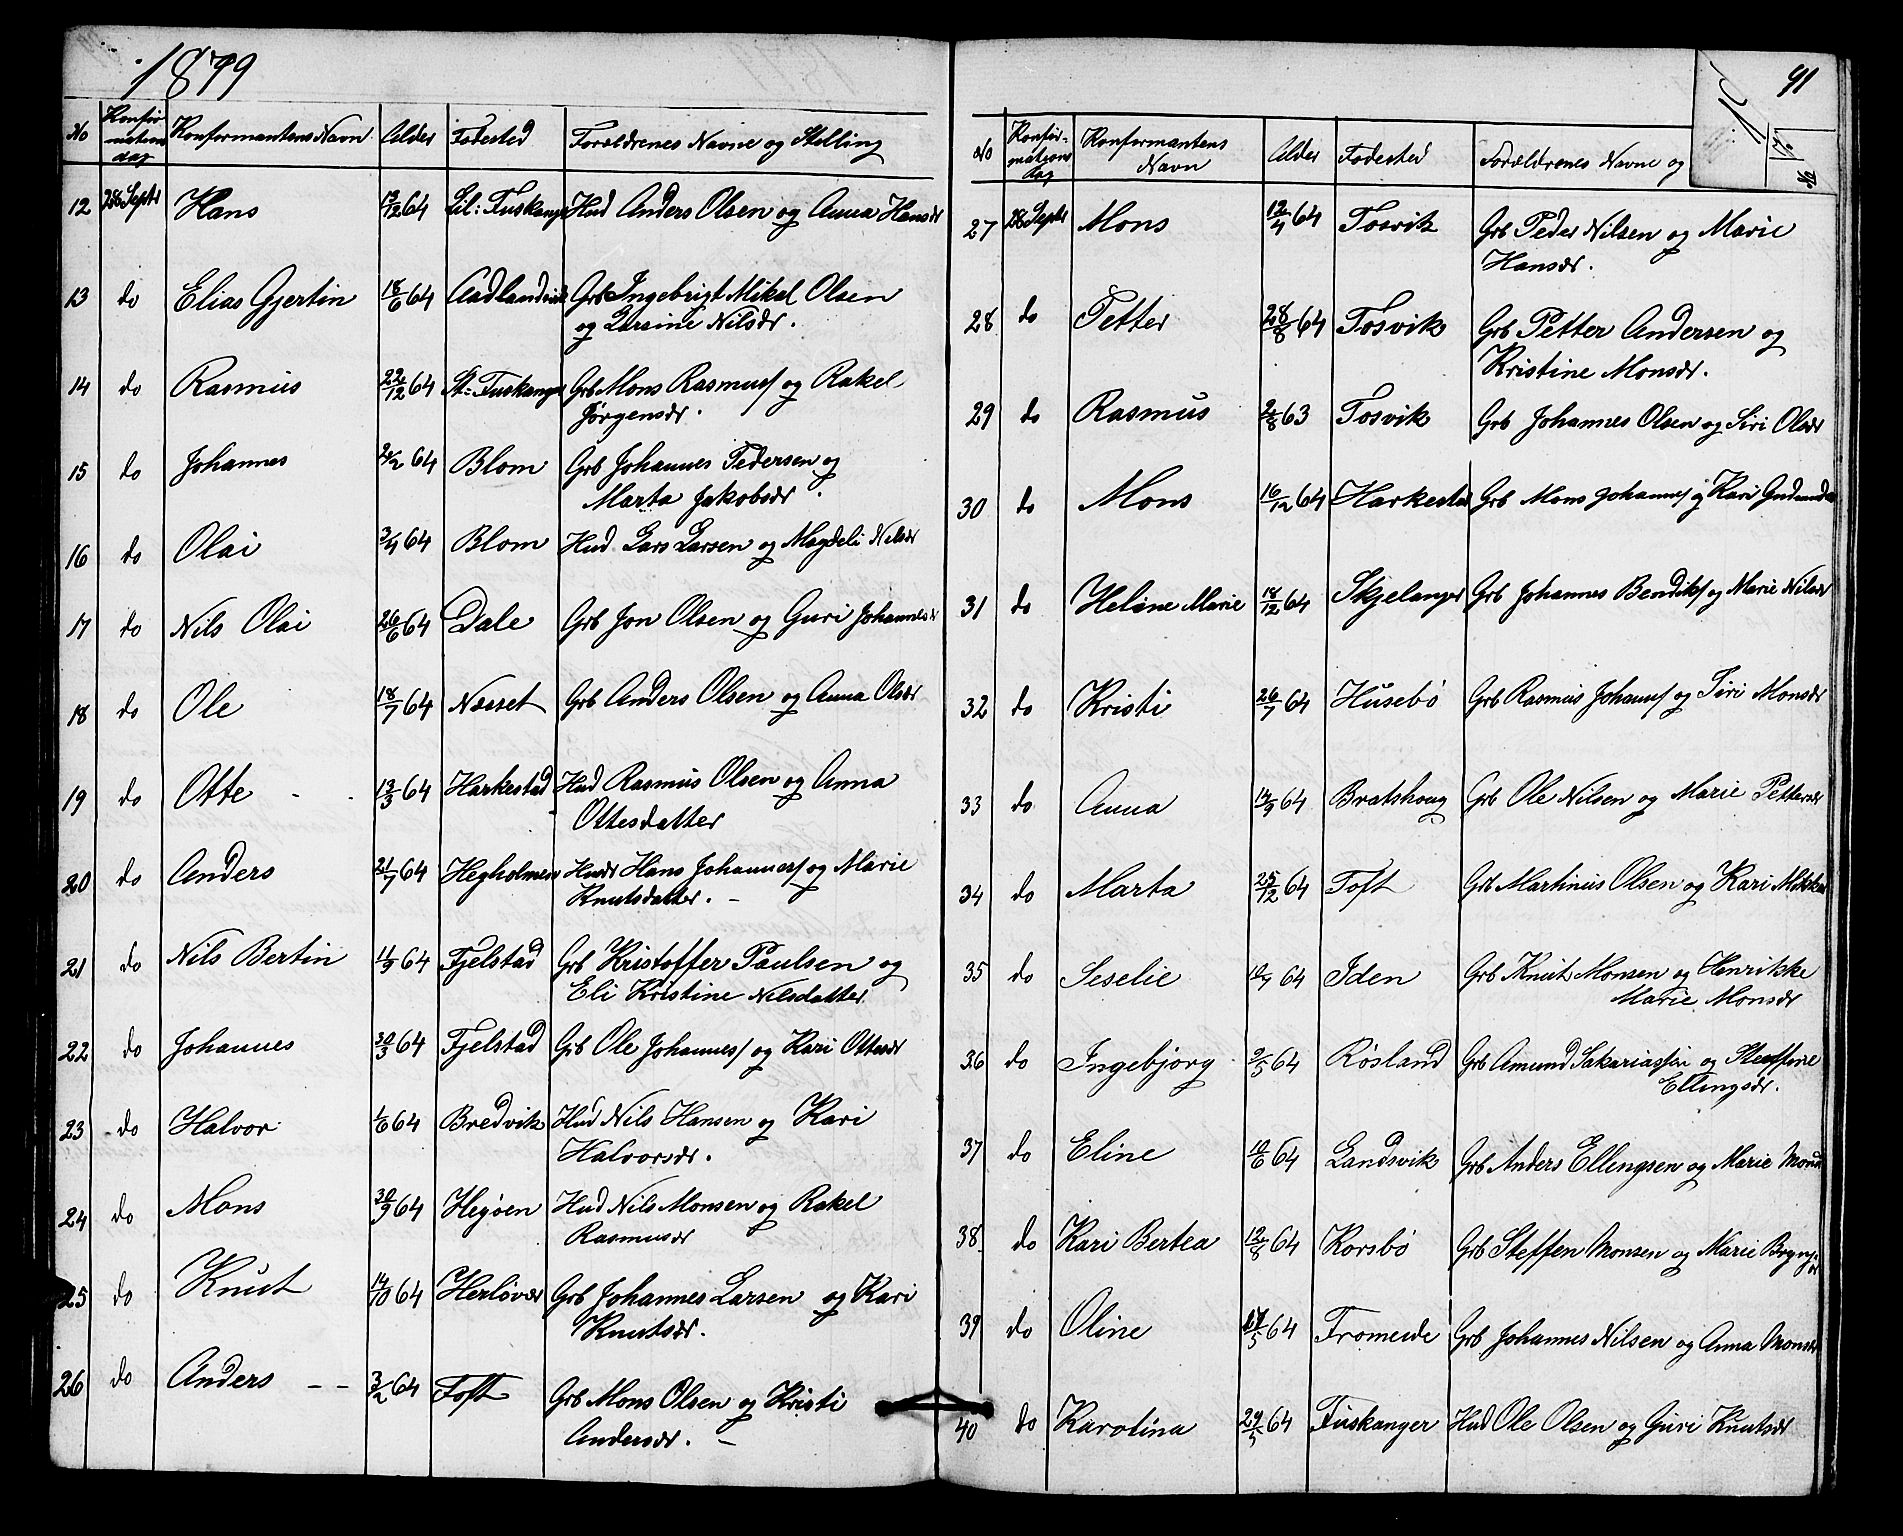 1879
No Konfirmations dag Konfirmantens Navn Alder Fødested Forældrenes Navne og Stilling
12 28 Septr Hans 13/12 64 Lil: Fuskanger Hud Anders Olsen og Anna Hansdr
13 do Elias Gjertin 18/6 64 Aadlandsvik Grb Ingebrigt Mikal Olsen
og Larsine Nilsdr.
14 do Rasmus 22/12 64 St: Fuskanger Grb Mons Rasmuss og Rakel
Jørgensdr.
15 do Johannes 2/2 64 Blom Grb Johannes Pedersen og
Marta Jakobsdr.
16 do Olai 3/4 64 Blom Hud Lars Larsen og Magdeli Nilsdr
17 do Nils Olai 26/6 64 Dale Grb Jon Olsen og Guri Johannesdr
18 do Ole 18/7 64 Næsset Grb Anders Olsen og Anna Olsdr
19 do Otte - - 13/3 64 Harkestad Hud Rasmus Olsen og Anna
Ottesdatter
20 do Anders 21/7 64 Hegholmen Hud Hans Johanness og Marie
Knutsdatter. -
21 do Nils Bertin 11/9 64 Fjelstad Grb Kristoffer Paulsen og
Eli Kristine Nilsdatter
22 do Johannes 30/3 64 Fjelstad Grb Ole Johanness og Kari Ottesdr
23 do Halvor 1/6 64 Bredvik Hud Nils Hansen og Kari
Halvorsdr.
24 do Mons 30/9 64 Hegøen Hud Nils Monsen og Rakel
Rasmusdr
25 do Knut 14/10 64 Herløvær Grb Johannes Larsen og Kari
Knutsdr.
26 do Anders - - 3/2 64 Toft Grb Mons Olsen og Kristi
Andersdr. -
91
No Konfirmations dag Konfirmantens Navn Alder Fødested Forældrenes Navne og
27 28 Septr Mons 12/4 64 Tosvik Grb Peder Nilsen og Marie
Hansdr.
28 do Petter 28/8 64 Tosvik Grb Petter Andersen og
Kristine Monsdr.
29 do Rasmus 2/8 63 Tosvik Grb Johannes Olsen og Siri Olsdr
30 do Mons 16/12 64 Harkestad Grb Mons Johanness og Kari Gudmundsdr
31 do Heline Marie 18/12 64 Skjelanger Grb Johannes Bendiks og Marie Nilsdr
32 do Kristi 26/7 64 Husebø Grb Rasmus Johanness og Siri Monsdr
33 do Anna 14/9 64 Bratshoug Grb Ole Nilsen og Marie Pettersdr
34 do Marta 25/12 64 Toft Grb Martinus Olsen og Kari
35 do Seselie 10/7 64 Iden Grb Knut Monsen og Henrikke
Marie Monsdr
36 do Ingebjorg 9/5 64 Røsland Grb Amund Sakariassen og Steffine
Ellingsdr.
37 do Eline 10/6 64 Landsvik Grb Anders Ellingsen og Marie Monsdr
38 do Kari Bertea 12/8 64 Korsbø Grb Steffen Monsen og Marie
39 do Oline /5 64 Fromreide Grb Johannes Nilsen og Anna Monsdr
40 do Karolina 29/5 64 Fuskanger Hud Ole Olsen og Guri Knutsdr